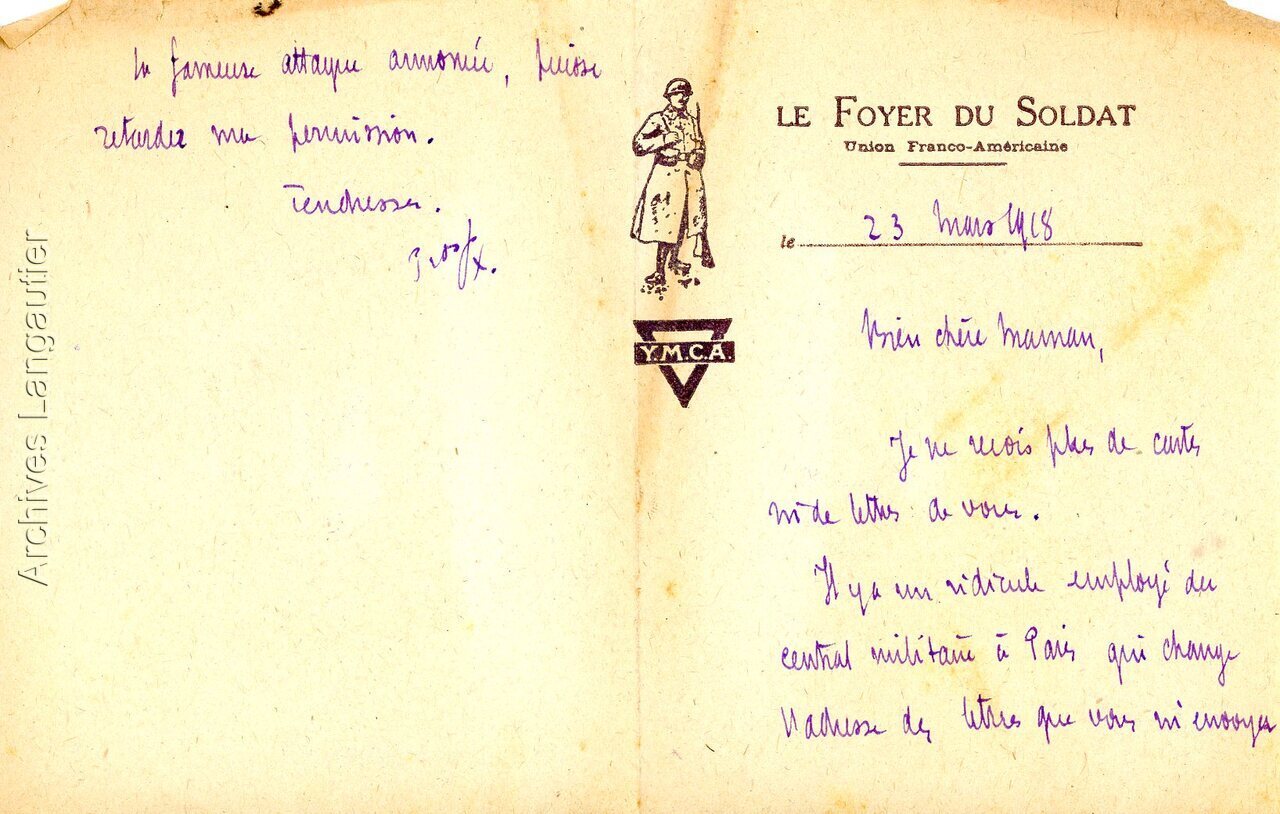 la fameuse attaque annoncée, puisse
retarder ma permission.
Tendresses.
LE FOYER DU SOLDAT
Union Franco-Américaine
le 23 Mars 1918
Y.M.C.A.
Bien chère Maman,
Je ne reçois plus de cartes
ni de lettres de vous.
Il y a un ridicule employé du
central militaire à Paris qui change
l'adresse des lettres que vous m'envoyez
Archives Langautier